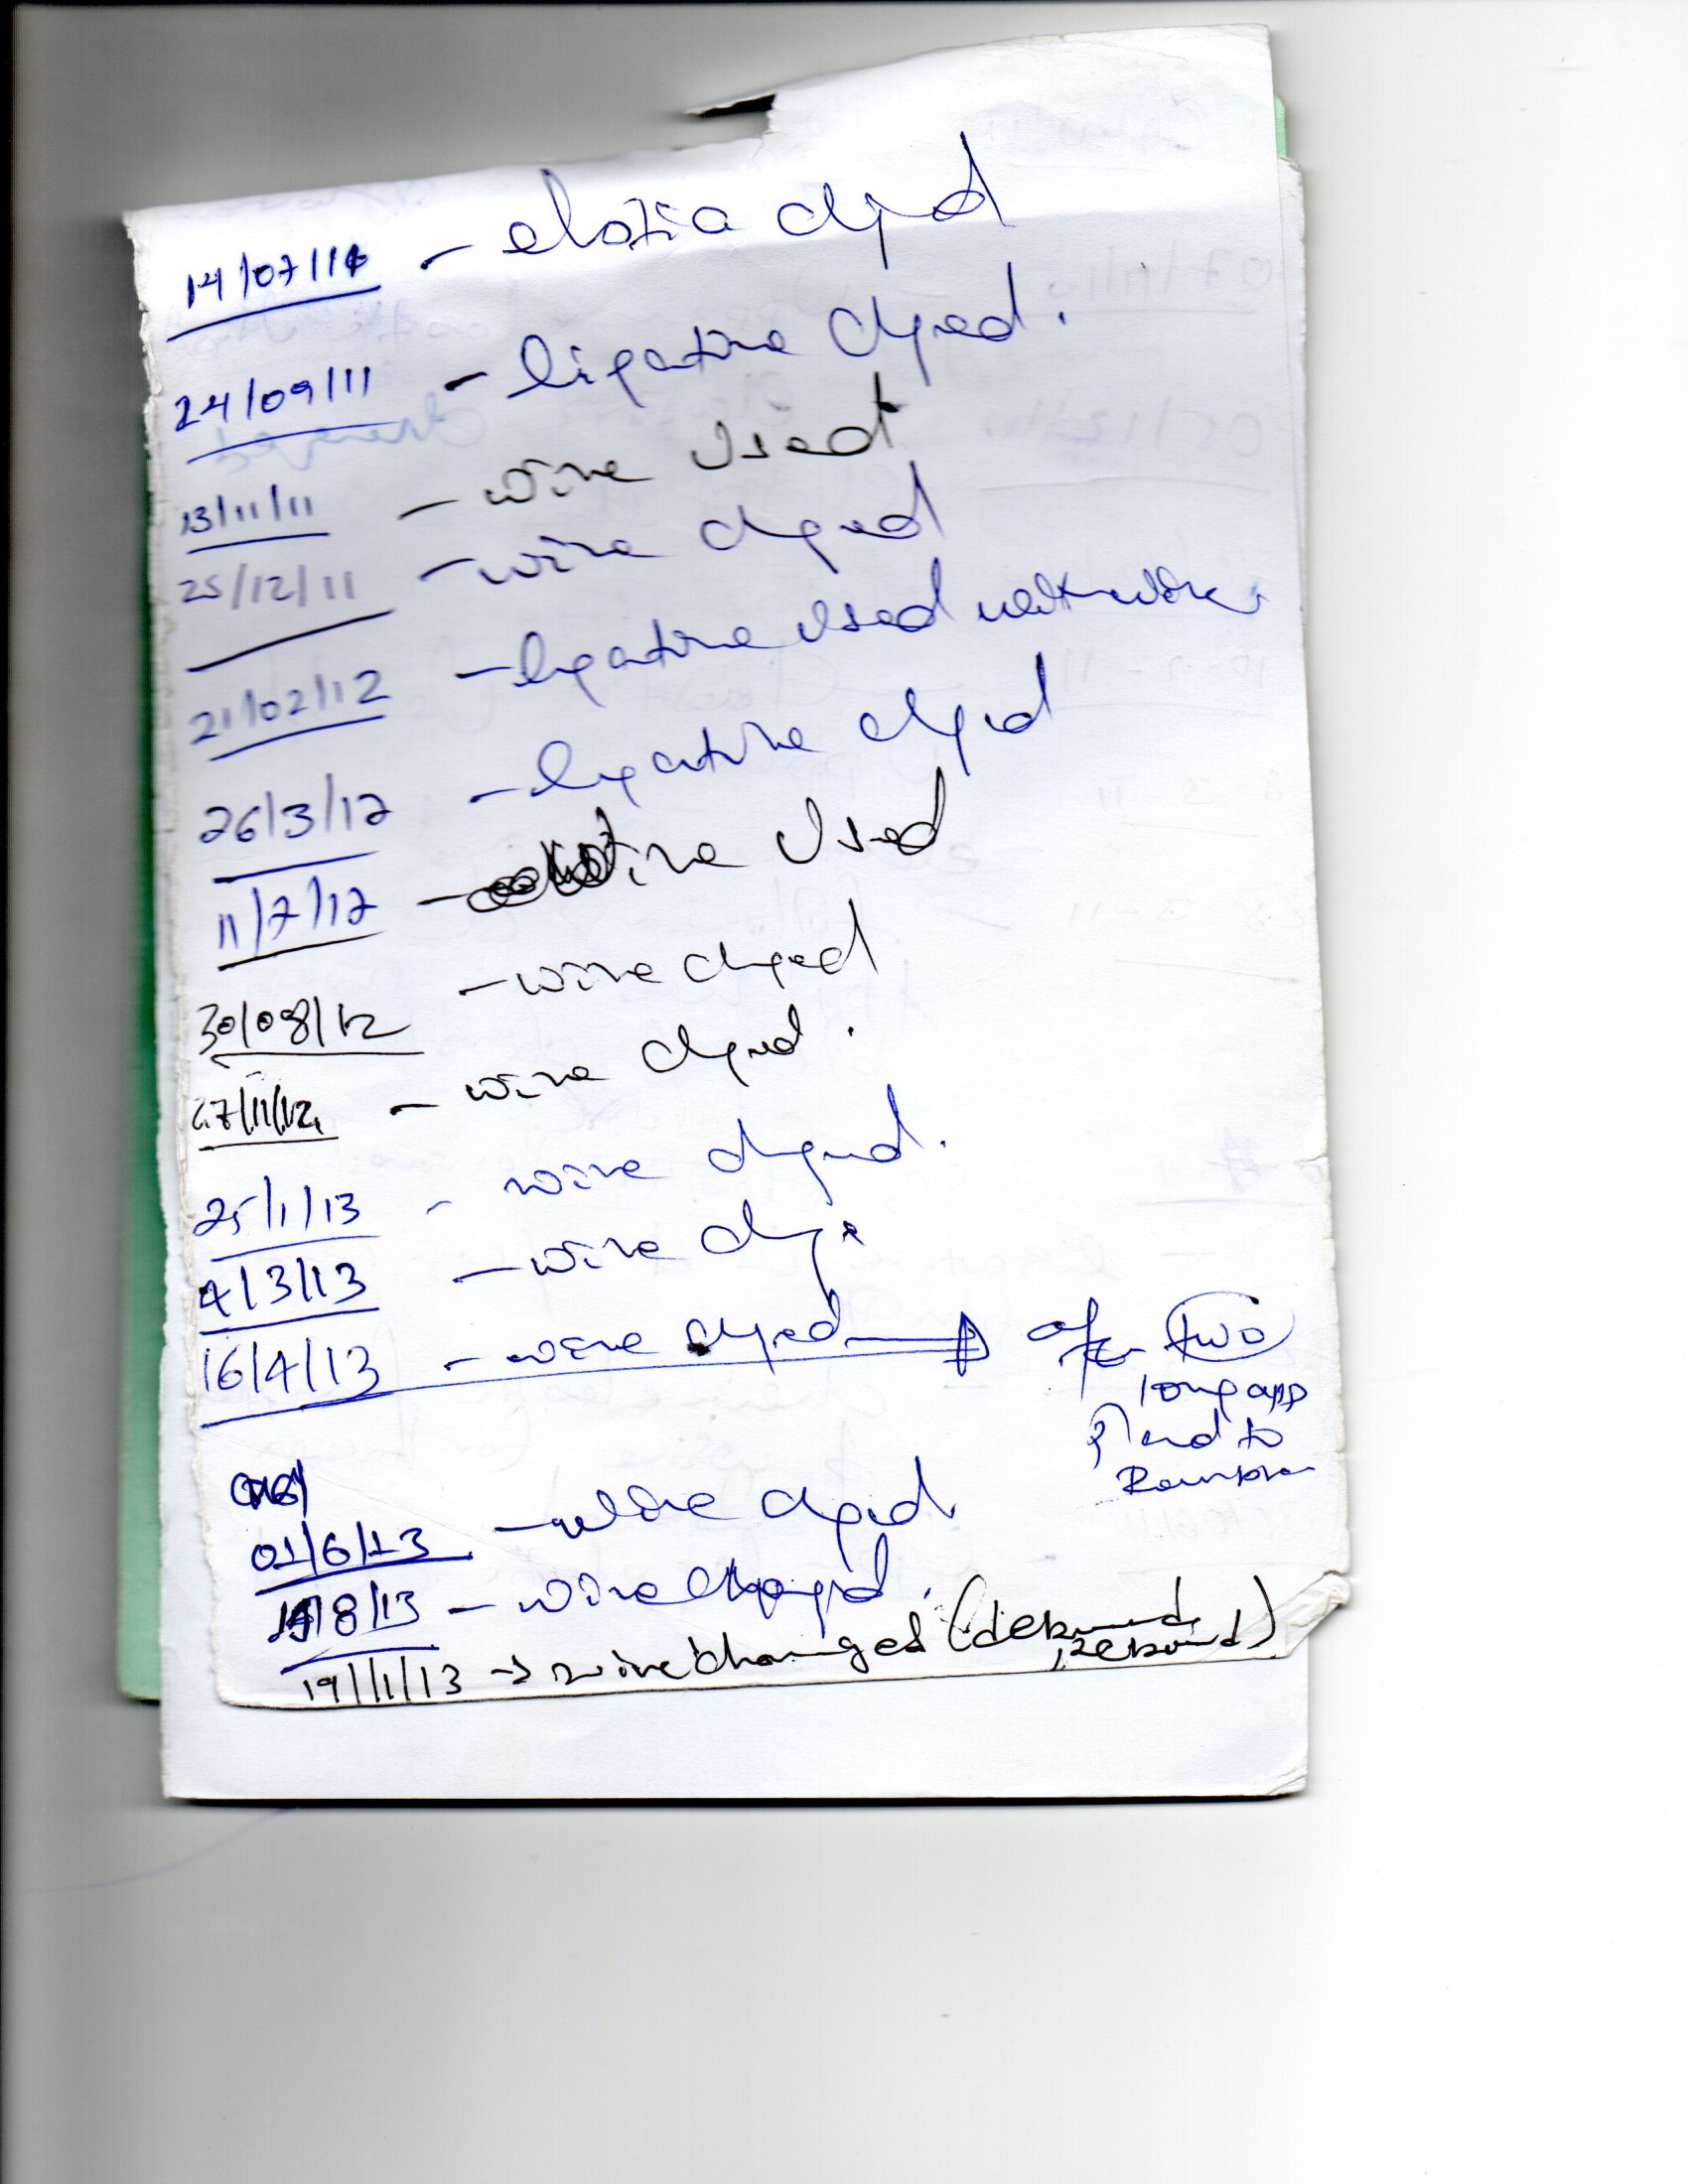 14/07/11 - elastic chged
24/09/11 - ligature chged.
13/11/11 - wire used
25/12/11 - wire chged
21/02/12 - ligature used
26/3/12 - ligature chged
11/7/12 - wire used
30/08/12 - wire chged
27/11/12 - wire chged.
25/1/13 - wire chged.
4/3/13 - wire chg.
16/4/13 - wire chged → after two
long app
pland to
01/6/13 - wire chged.
/8/13 - wire changed.
19/11/13 → wire changed (debond, rebond)